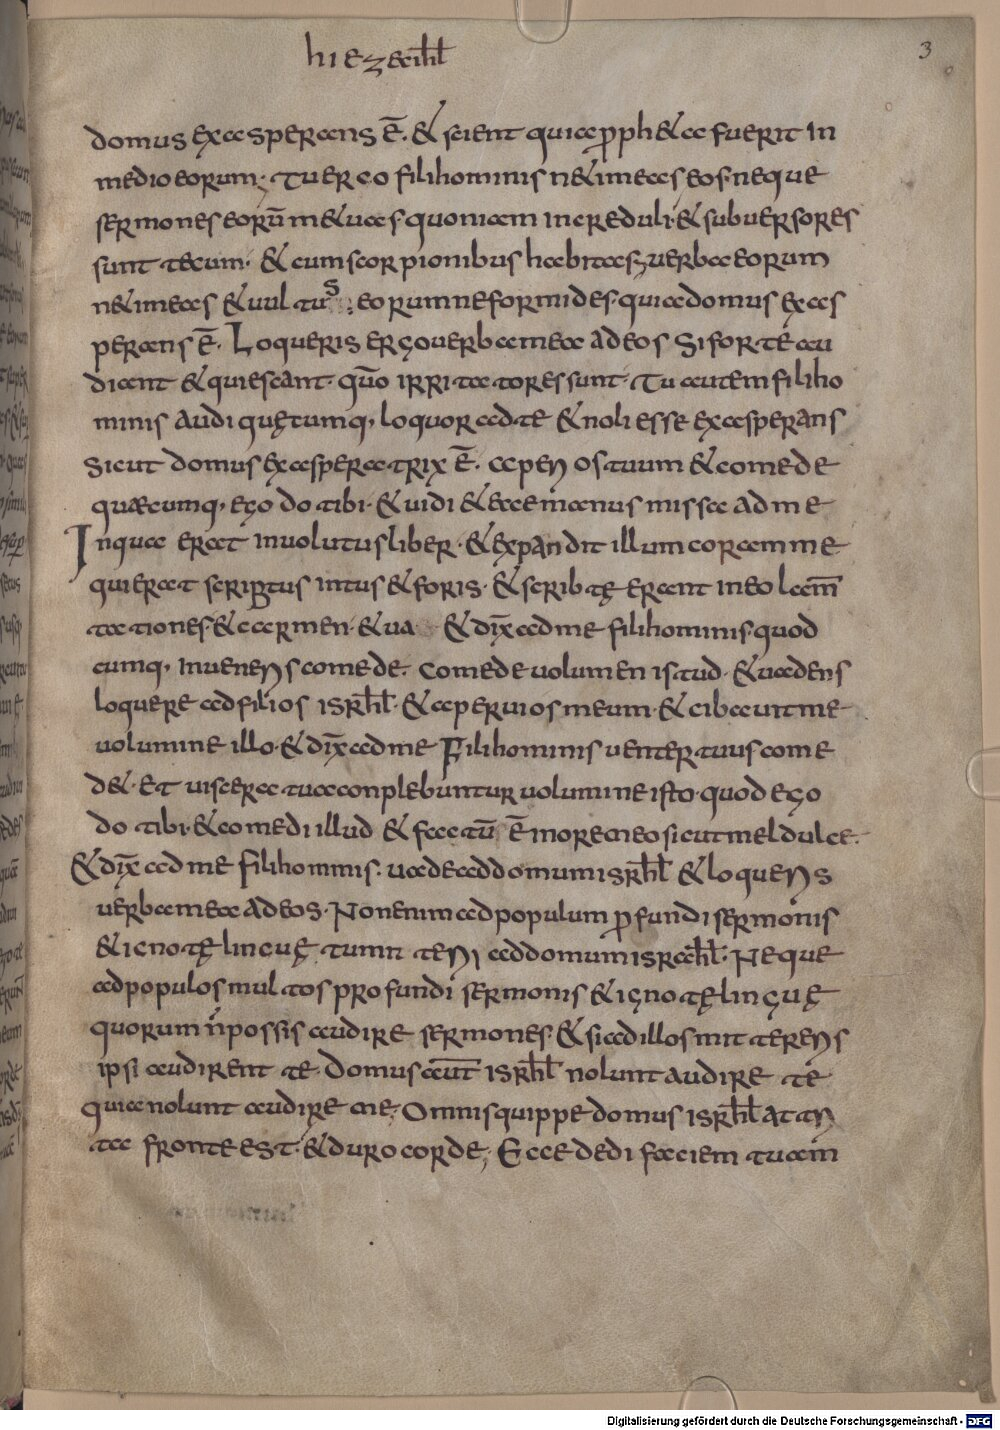 hiezechihl
3
domus exasperans ē. & scient quia pph&a fuerit in
medio eorum. Tu ergo fili hominis n& imeas eos neque
sermones eorū m&uas. quoniam increduli & subuersores
sunt tecum. & cum scorpionibus habitas; uerba eorum
n& imeas & uultus eorum ne formides. quia domus exas
perans ē. Loqueris ergo uerba mea ad eos si forte au
diant & quiescant. qūo irritatores sunt. Tu autem fili ho
minis audi quętumq, loquor ad te & noli esse exasperans
sicut domus exasperatrix ē. aperi os tuum & comede
quæcumq, ego do tibi. & uidi & ecce manus missa ad me
In qua erat inuolutus liber. & expandit illum coram me
qui erat scribtus intus & foris. & scribtę erant in eo lam̄
tationes. & carmen. & ua & dix̄ ad me fili hominis quod
cumq, inueneris comede. comede uolumen istud. & uadens
loquere ad filios isrhl. & aperui os meum. & cibauit me
uolumine illo. & dix̄ ad me Fili hominis uenter tuus come
d&. et uiscera tua conplebuntur uolumine isto. quod ego
do tibi. & comedi illud & factū ē in ore meo sicut mel dulce.
& dix̄ ad me fili hominis. uade ad domum isrhl & loqueris
uerba mea ad eos. Non enim ad populum pfundi sermonis
& ignotę linguę tu mitteris ad domum israhl. Neque
ad populos multos profundi sermonis & ignotę linguę
quorum n̄ possis audire sermones. & si ad illos mittereris
ipsi audirent te. Domus aūt isrhl nolunt audire te
quia nolunt audire me; Omnis quippe domus isrhl attri
ta fronte est. & duro corde; Ecce dedi faciem tuam
Digitalisierung gefördert durch die Deutsche Forschungsgemeinschaft - DFG